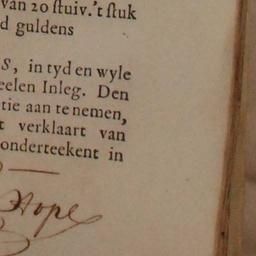 van 20 ſtuiv.'t ſtuk
d guldens
S, in tyd en wyle
eelen Inleg. Den
tie aan te nemen,
t verklaart van
onderteekent in
Hope